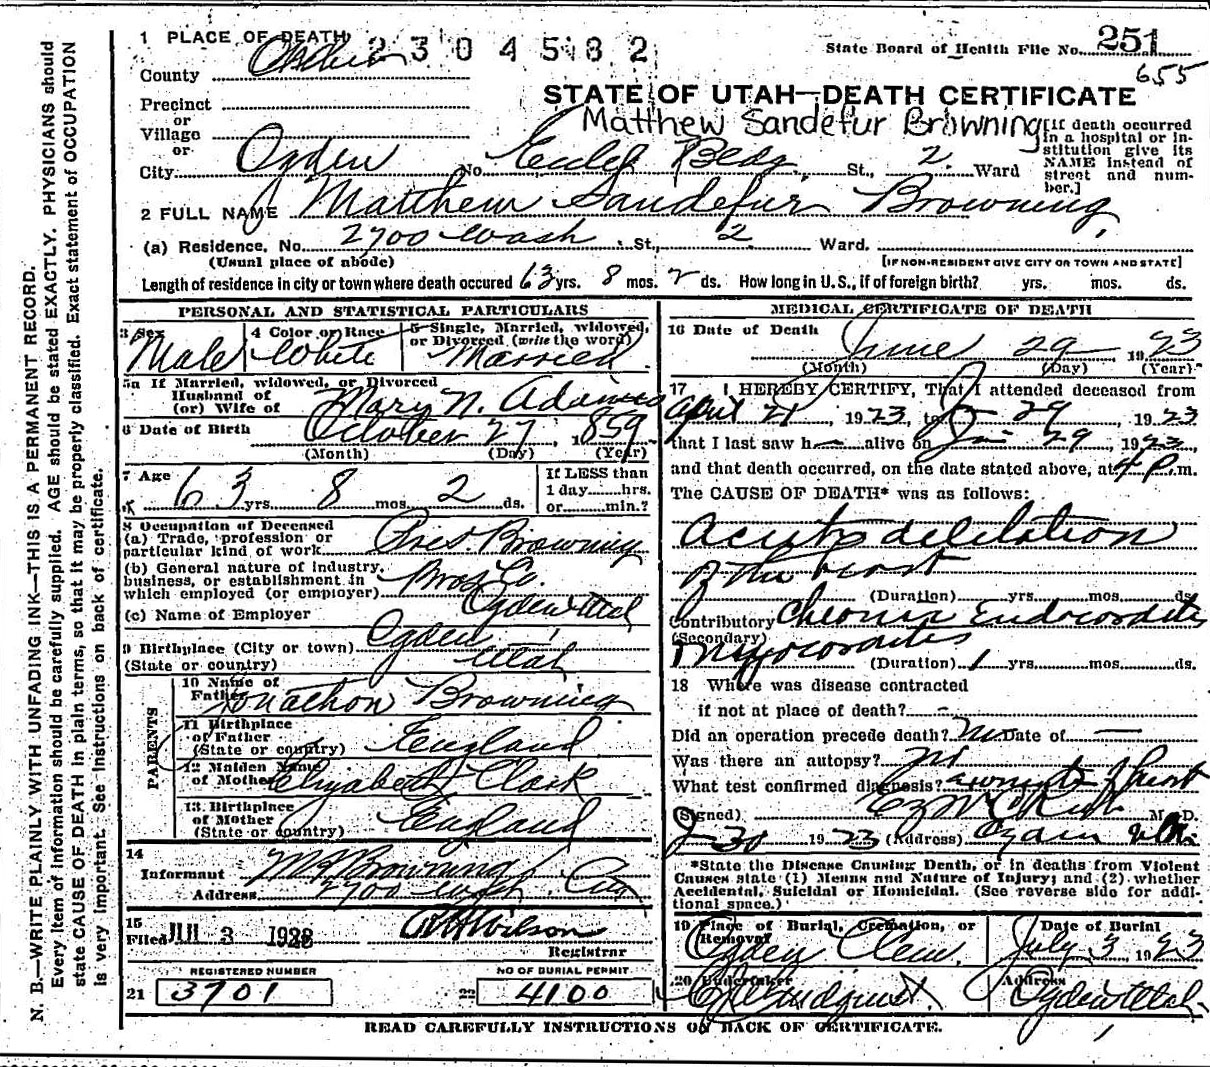 N. B.—WRITE PLAINLY WITH UNFADING INK—THIS IS A PERMANENT RECORD.
Every item of information should be carefully supplied. AGE should be stated EXACTLY. PHYSICIANS should
state CAUSE OF DEATH in plain terms, so that it may be properly classified. Exact statement of OCCUPATION
is very important. See instructions on back of certificate.
1 PLACE OF DEATH 2304582
State Board of Health File No. 251
County
655
Precinct
STATE OF UTAH—DEATH CERTIFICATE
or
Village
Matthew Sandefur Browning
[If death occurred in a hospital or institution give its NAME instead of street and number.]
or
City Ogden No. Eccles Bldg. St., 2 Ward
2 FULL NAME Matthew Sandefur Browning
(a) Residence, No. 2700 Wash St., 2 Ward.
(Usual place of abode) [IF NON-RESIDENT GIVE CITY OR TOWN AND STATE]
Length of residence in city or town where death occured 63 yrs. 8 mos. 2 ds. How long in U.S., if of foreign birth? yrs. mos. ds.
PERSONAL AND STATISTICAL PARTICULARS
3 Sex 4 Color or Race 5 Single, Married, widowed, or Divorced (write the word)
Male White Married
5a If Married, widowed, or Divorced
Husband of
(or) Wife of Mary N. Adams
6 Date of Birth October 27, 1859
(Month) (Day) (Year)
7 Age 63 yrs. 8 mos. 2 ds. If LESS than
1 day hrs.
or min.?
8 Occupation of Deceased
(a) Trade, profession or
particular kind of work Pres. Browning
(b) General nature of industry,
business, or establishment in
which employed (or employer) Bros. Co.
Ogden Utah
(c) Name of Employer
9 Birthplace (City or town) Ogden
(State or country) Utah
PARENTS
10 Name of
Father Jonathon Browning
11 Birthplace
of Father
(State or country) England
12 Maiden Name
of Mother Elizabeth Clark
13 Birthplace
of Mother
(State or country) England
14
Informant Browning
Address 2700 Wash City
15
Filed JUL 3 Wilson
Registrar
REGISTERED NUMBER NO OF BURIAL PERMIT
21 3701 22 4100
MEDICAL CERTIFICATE OF DEATH
16 Date of Death June 29 1923
(Month) (Day) (Year)
17 I HEREBY CERTIFY, That I attended deceased from
April 21, 1923, to 29, 1923
that I last saw h alive on 29 1923
and that death occurred, on the date stated above, at 4 p.m.
The CAUSE OF DEATH* was as follows:
Acute dilitation
of the heart
(Duration) yrs. mos. ds.
Contributory Chronic Endocarditis
(Secondary)
Myocarditis
(Duration) 1 yrs. mos. ds.
18 Where was disease contracted
if not at place of death? -
Did an operation precede death? No Date of —
Was there an autopsy? no
What test confirmed diagnosis?
(Signed) M. D.
30 1923 (Address) Ogden Utah
*State the Disease Causing Death, or in deaths from Violent
Causes state (1) Means and Nature of Injury; and (2) whether
Accidental, Suicidal or Homicidal. (See reverse side for additional space.)
19 Place of Burial, Cremation, or Removal Date of Burial
Ogden Cem. July 3, 1923
20 Undertaker Address
Lindquist Ogden Utah
READ CAREFULLY INSTRUCTIONS ON BACK OF CERTIFICATE.